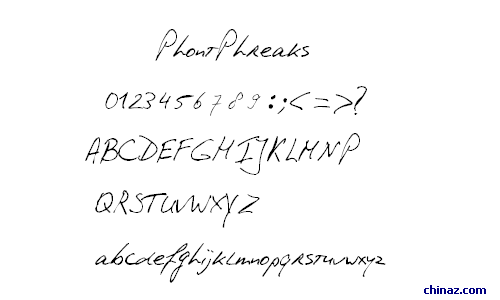 PhontPhreaks
0123456789:;<=>?
ABCDEFGHIJKLMNP
QRSTUVWXYZ
abcdefghijklmnopqrstuvwxyz
chinaz.com